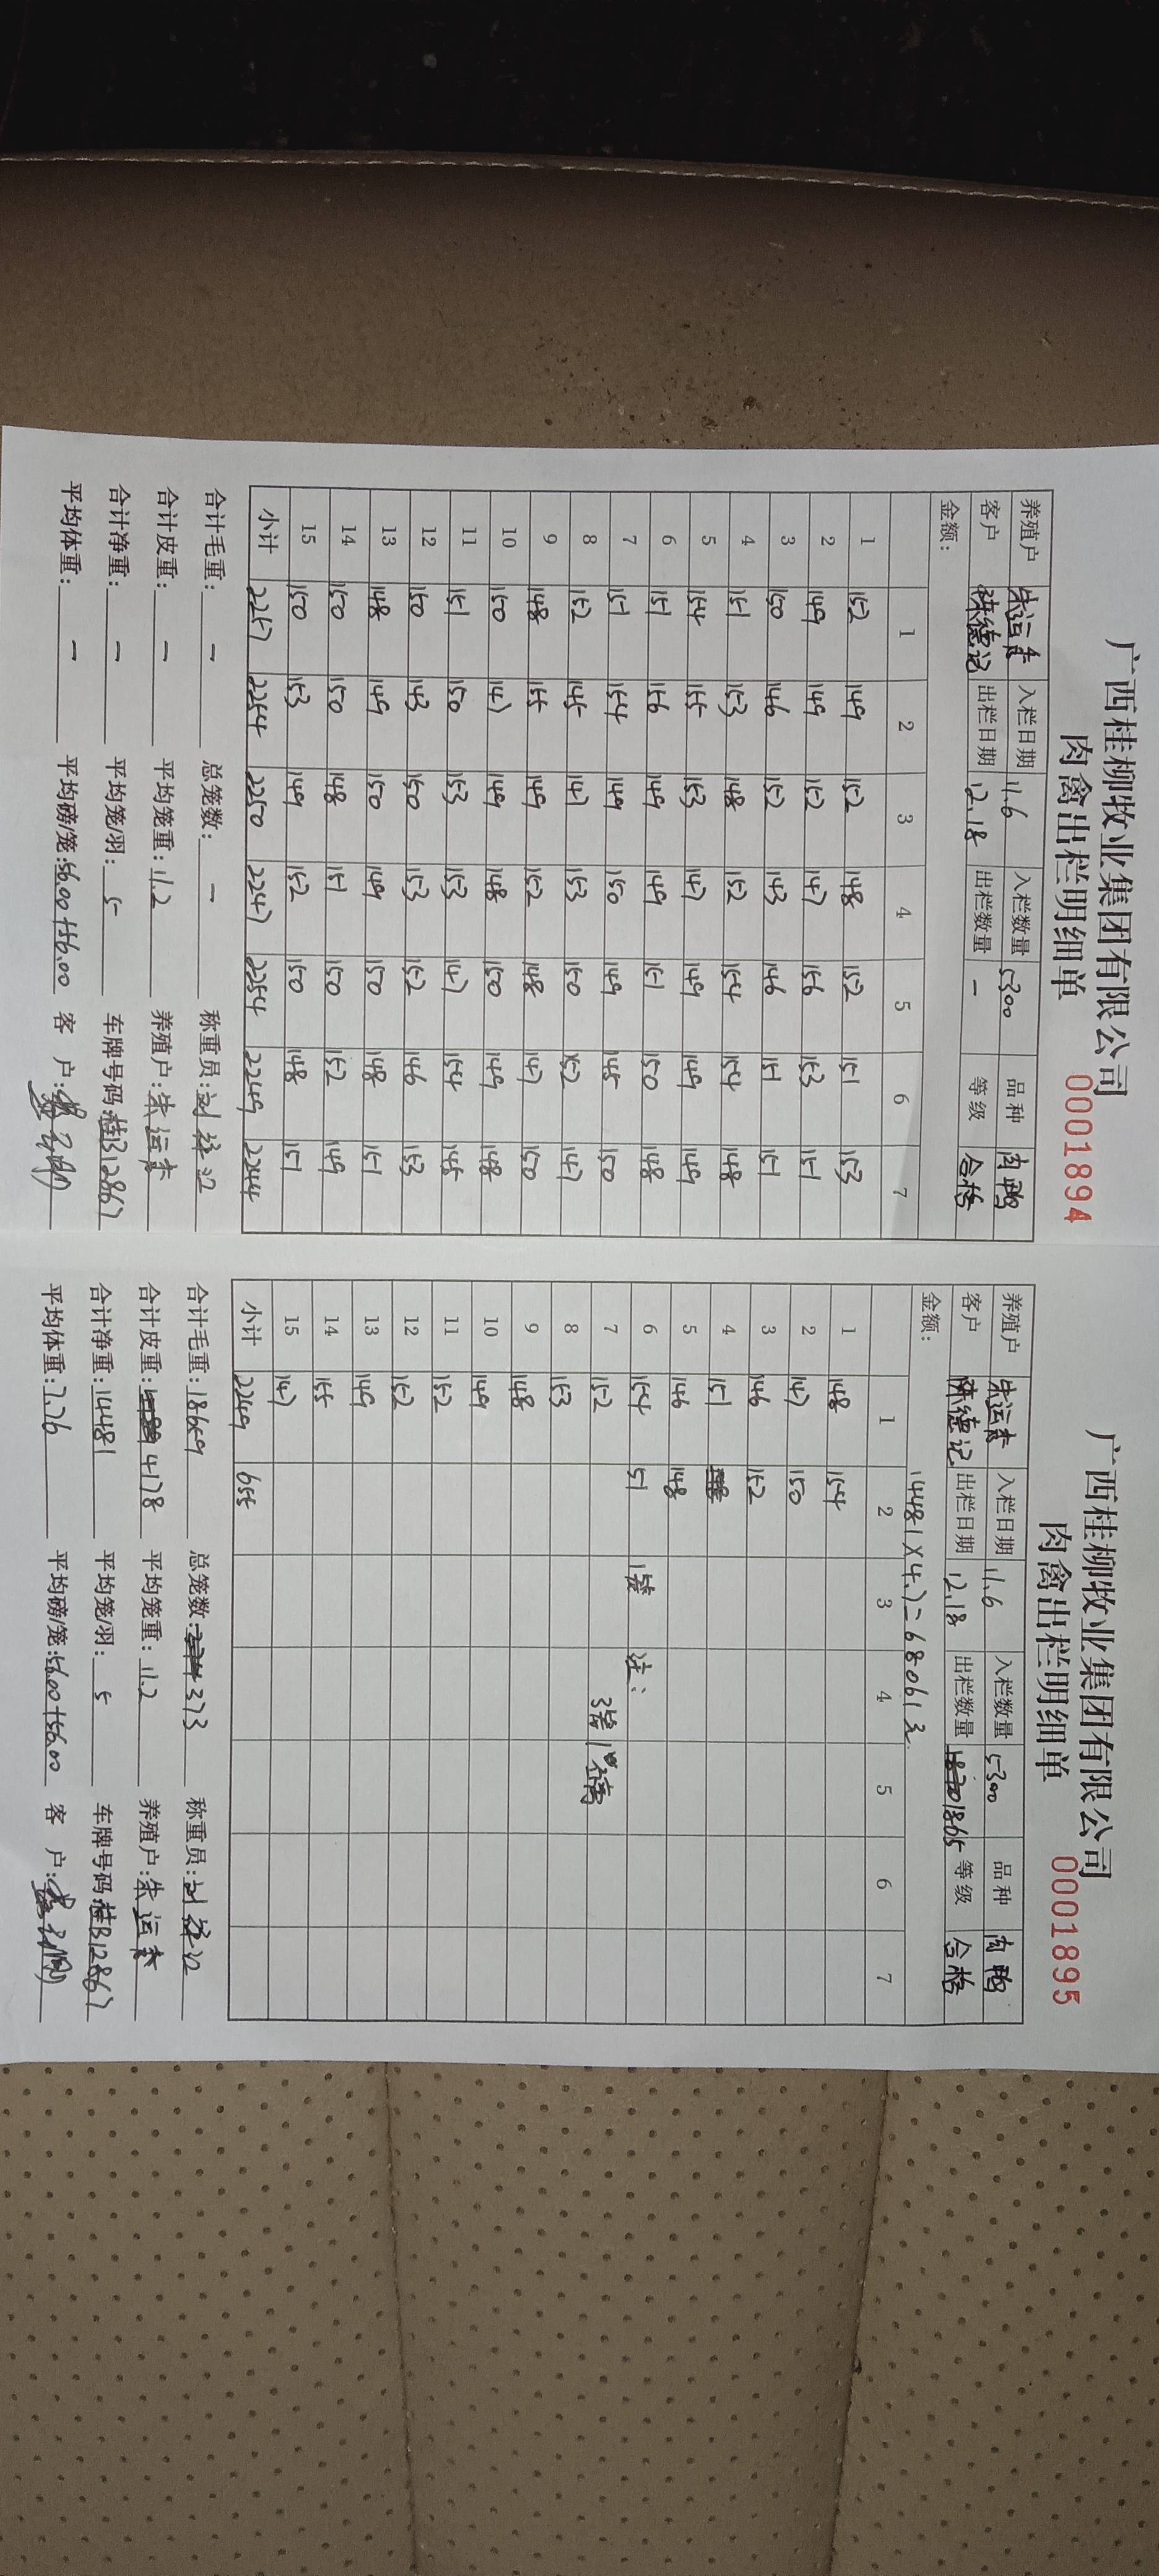 广西桂柳牧业集团有限公司
肉禽出栏明细单 0001894
养殖户 朱运 入栏日期 11.6 入栏数量 5300 品种 肉鸭
客户 陈德记 出栏日期 12.18 出栏数量 — 等级 合格
金额:
1 2 3 4 5 6 7
1 152 149 152 148 152 151 153
2 149 149 152 147 156 153 151
3 150 146 152 143 146 151 151
4 151 153 148 152 154 154 148
5 154 155 153 147 149 149 149
6 151 156 149 149 151 150 148
7 151 154 149 150 149 145 150
8 152 145 147 153 150 152 147
9 148 155 149 152 148 147 150
10 150 147 149 148 150 149 148
11 151 150 153 153 147 154 145
12 150 143 150 153 152 146 153
13 148 149 150 149 150 148 151
14 150 150 148 151 150 152 149
15 150 153 149 152 150 148 151
小计 2257 2254 2250 2247 2254 2249 2244
合计毛重: — 总笼数: — 称重员:刘
合计皮重: — 平均笼重: 11.2 养殖户:朱运
合计净重: — 平均笼/羽: 5 车牌号码:桂B12867
平均体重: — 平均磅/笼:56.00+56.00 客 户:
广西桂柳牧业集团有限公司
肉禽出栏明细单 0001895
养殖户 朱运 入栏日期 11.6 入栏数量 5300 品种 肉鸭
客户 陈德记 出栏日期 12.18 出栏数量 1865 等级 合格
金额: 14481×4.7=68061元
1 2 3 4 5 6 7
1 148 154
2 147 150
3 146 152
4 151
5 146 148
6 154 51 1笼 注:
7 152 3笼1
8 153
9 148
10 149
11 152
12 152
13 149
14 155
15 147
小计 2249 655
合计毛重:18659 总笼数: 373 称重员:刘
合计皮重: 4178 平均笼重: 11.2 养殖户:朱运
合计净重:14481 平均笼/羽: 5 车牌号码:桂B12867
平均体重:7.76 平均磅/笼:56.00+56.00 客 户: